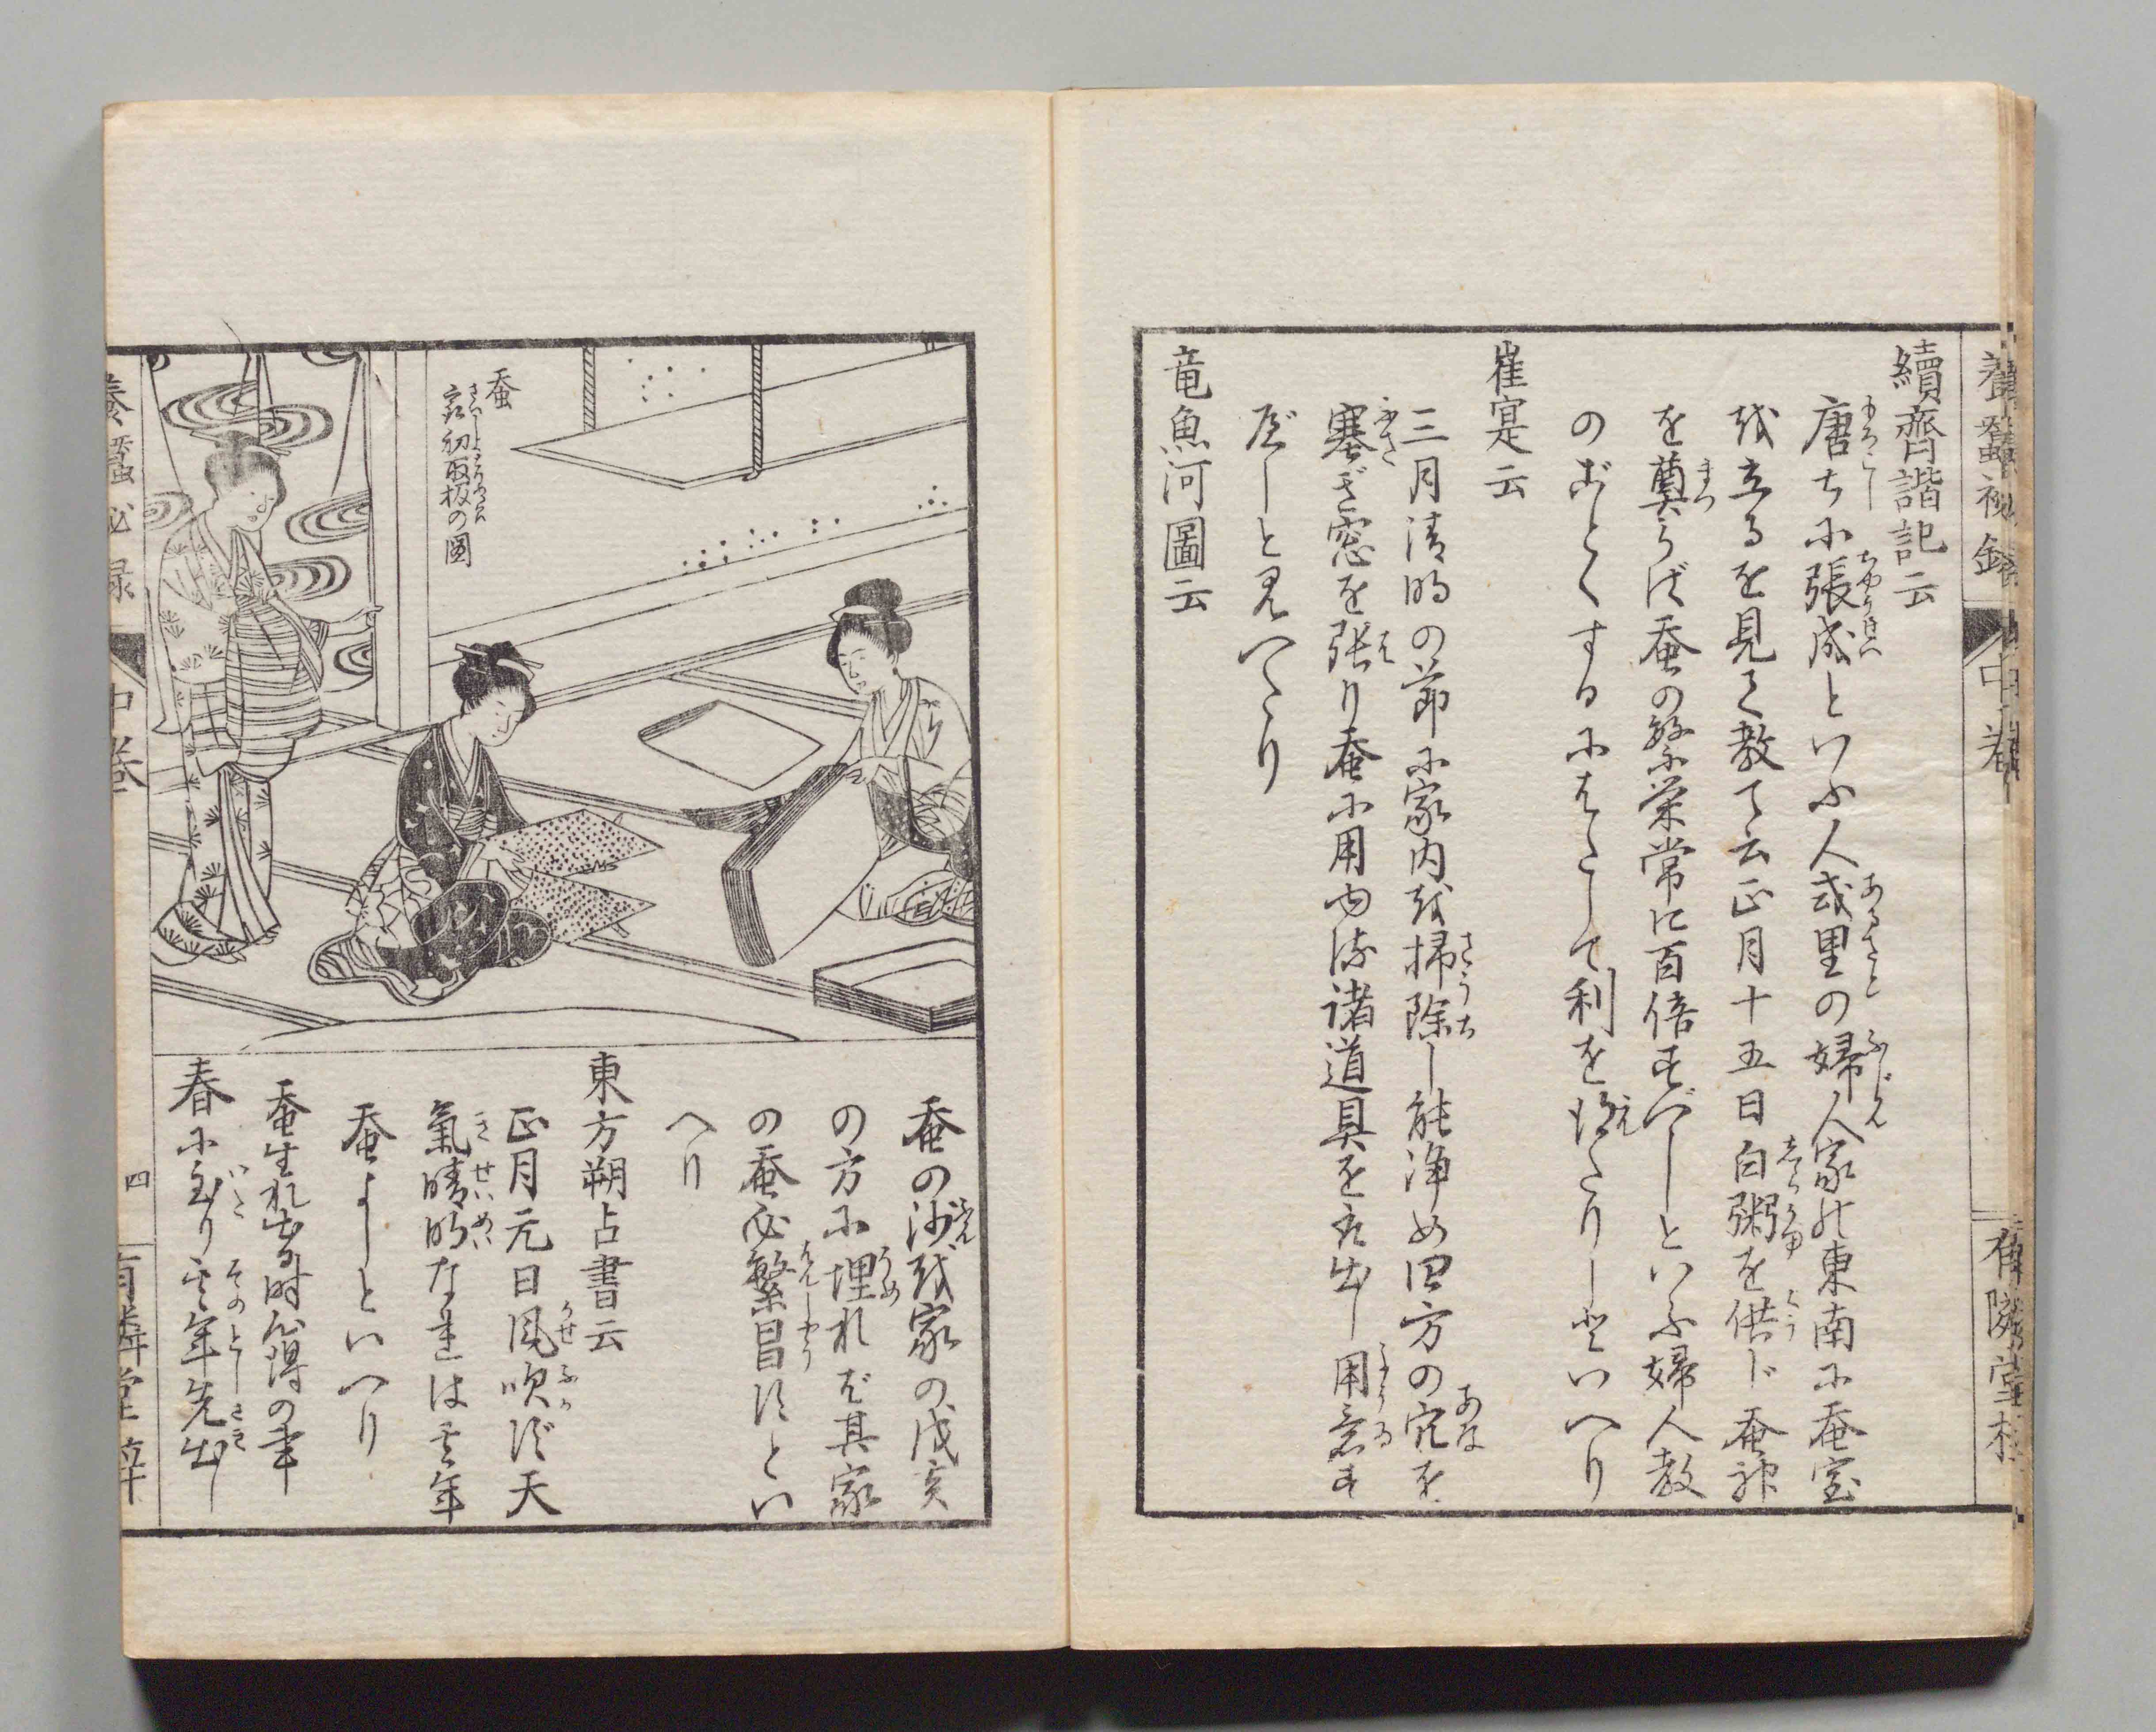 養蠶秘録
中巻
有隣堂梓
續齊諧記云
唐土に張成といふ人或里の婦人家の東南に蚕室
を立るを見て教て云正月十五日白粥を供じ蚕神
を奠らば蚕の繁栄常に百倍すべしといふ婦人教
のごとくするにはたして利を得たりしといへり
崔寔云
三月清明の節に家内を掃除し能浄め四方の穴を
塞ぎ窓を張り蚕に用ゆる諸道具を取出し用意す
べしと見へたり
竜魚河圖云
蚕
種初取扱の図
蚕の沙を家の戌亥
の方に埋れば其家
の蚕必繁昌すとい
へり
東方朔占書云
正月元日風吹ず天
氣晴明なれば其年
蚕よしといへり
蚕生れ出る時心得の事
春に至り其年先出し
養蠶必録
中巻
四
有隣堂梓